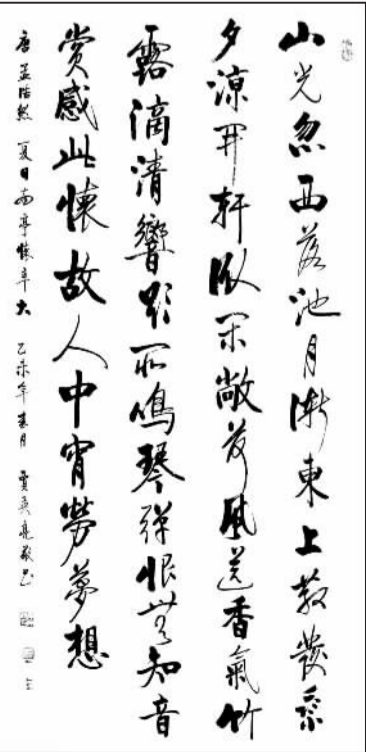 山光忽西落池月漸東上散發乘
夕涼開軒臥閑敞荷風送香氣竹
露滴清響欲取鳴琴彈恨無知音
賞感此懷故人中宵勞夢想
唐孟浩然 夏日南亭懷辛大 乙未年春月 賈英亮敬書